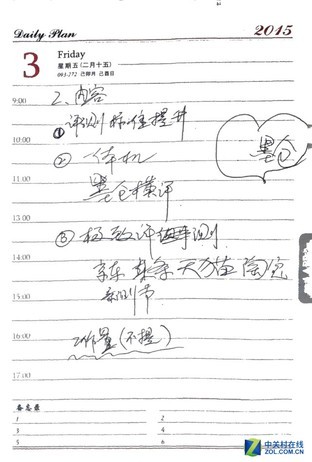 Daily Plan 2015
3 Friday
星期五(二月十五)
093-272 己卯月 己酉日
9:00 2、内容
① 评测标准提升
10:00
② 一体机
墨仓
11:00
墨仓横评
12:00
13:00 ③ 极致评测
14:00 京东 天猫 淘宝
15:00
16:00 工作量(不提)
17:00
备忘录
1 2
3 4
5 6
中关村在线
ZOL.COM.CN